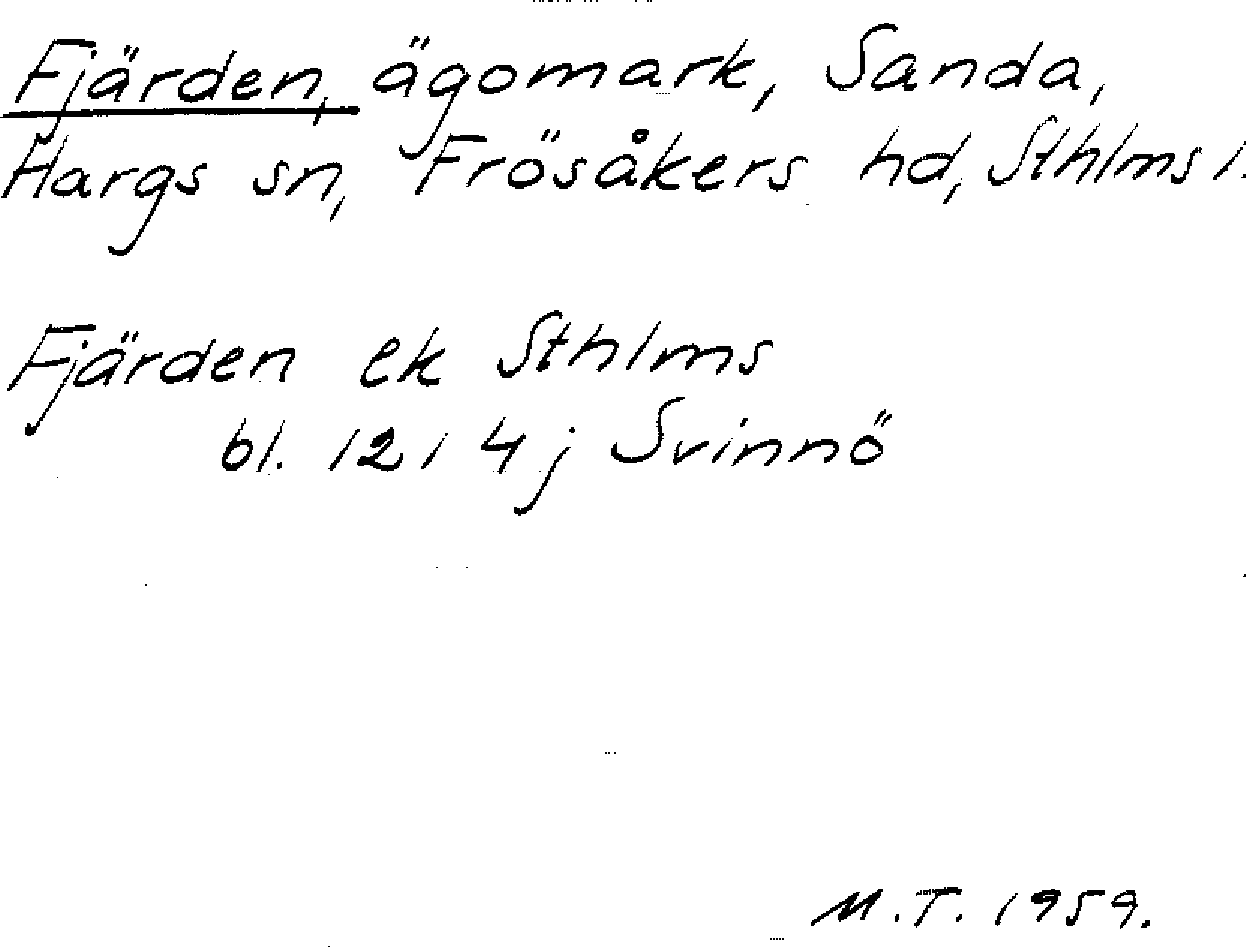 Fjärden, ägomark, Sanda,
Hargs sn, Frösåkers hd, Sthlms l.
Fjärden ek Sthlms
bl. 121 4 j Svinnö
M.T. 1959.